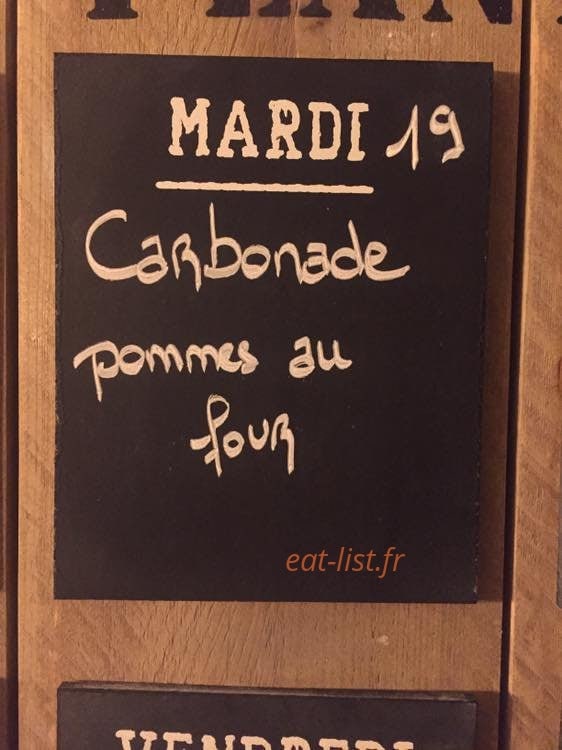 MARDI 19
Carbonade
pommes au
four
eat-list.fr
VENDREDI